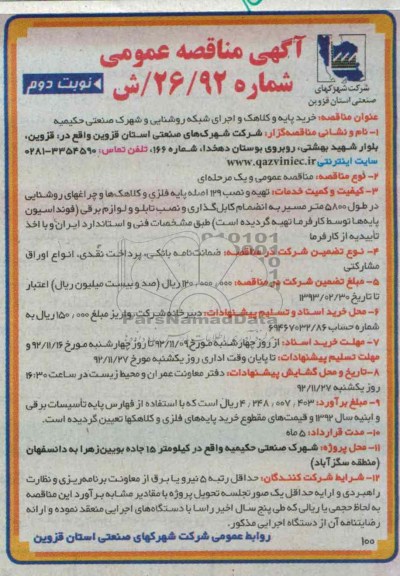 آگهی مناقصه عمومی
شماره ۲۶/۹۲/ش
نوبت دوم
شرکت شهرکهای
صنعتی استان قزوین
عنوان مناقصه: خرید پایه و کلاهک و اجرای شبکه روشنایی و شهرک صنعتی حکیمیه
۱- نام و نشانی مناقصه‌گزار: شرکت شهرک‌های صنعتی استان قزوین واقع در: قزوین،
بلوار شهید بهشتی، روبروی بوستان دهخدا، شماره ۱۶۶، تلفن تماس: ۳۳۵۴۵۹۰-۰۲۸۱
سایت اینترنتی www.qazviniec.ir
۲- نوع مناقصه: مناقصه عمومی و یک مرحله‌ای
۳- کیفیت و کمیت خدمات: تهیه و نصب ۱۲۹ اصله پایه فلزی و کلاهک‌ها و چراغهای روشنایی
در طول ۵۸۰۰ متر مسیر به انضمام کابل‌گذاری و نصب تابلو و لوازم برقی (فونداسیون
پایه‌ها توسط کارفرما تهیه گردیده است) طبق مشخصات فنی و استاندارد ایران و با اخذ
تأییدیه از کارفرما
۴- نوع تضمین شرکت در مناقصه: ضمانت‌نامه بانکی، پرداخت نقدی، انواع اوراق
مشارکتی
۵- مبلغ تضمین شرکت در مناقصه: ۱۲۰/۰۰۰/۰۰۰ ریال (صد و بیست میلیون ریال) اعتبار
تا تاریخ ۱۳۹۳/۰۲/۳۰
۶- محل خرید اسناد و تسلیم پیشنهادات: دبیرخانه شرکت، واریز مبلغ ۱۵۰/۰۰۰ ریال به
شماره حساب ۶۹۴۶۷۰۳۲/۸۶
۷- مهلت خرید اسناد: از روز چهارشنبه مورخ ۹۲/۱۱/۰۹ تا روز چهارشنبه مورخ ۹۲/۱۱/۱۶ و
مهلت تسلیم پیشنهادات: تا پایان وقت اداری روز یکشنبه مورخ ۹۲/۱۱/۲۷
۸- تاریخ و محل گشایش پیشنهادات: دفتر معاونت عمران و محیط زیست در ساعت ۱۶:۳۰
روز یکشنبه ۹۲/۱۱/۲۷
۹- مبلغ برآورد: ۴/۲۴۸/۰۰۷/۴۰۳ ریال است که با استفاده از فهارس پایه تأسیسات برقی
و ابنیه سال ۱۳۹۲ و قیمت‌های مقطوع خرید پایه‌های فلزی و کلاهکها تعیین گردیده است.
۱۰- مدت قرارداد: ۵ ماه
۱۱- محل پروژه: شهرک صنعتی حکیمیه واقع در کیلومتر ۱۵ جاده بویین‌زهرا به دانسفهان
(منطقه سگزآباد)
۱۲- شرایط شرکت کنندگان: حداقل رتبه ۵ نیرو یا برق از معاونت برنامه‌ریزی و نظارت
راهبردی و ارایه حداقل یک صورتجلسه تحویل پروژه با مقادیر مشابه برآورد این مناقصه
به لحاظ حجمی یا ریالی که طی پنج سال اخیر راسا با دستگاه‌های اجرایی منعقد نموده و ارائه
رضایتنامه آن از دستگاه اجرایی مذکور.
روابط عمومی شرکت شهرکهای صنعتی استان قزوین
۱۰۰